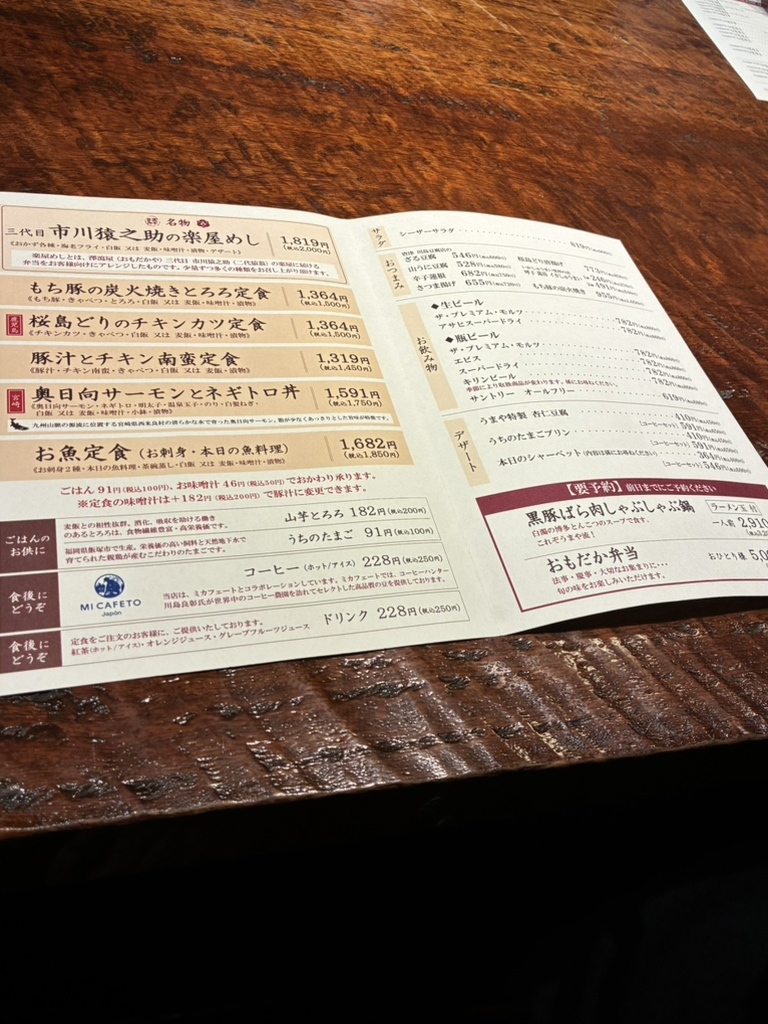 名物
三代目 市川猿之助の楽屋めし 1,819円
(税込2,000円)
《おかず各種・海老フライ・白飯 又は 麦飯・味噌汁・漬物・デザート》
楽屋めしとは、澤瀉屋（おもだかや）三代目 市川猿之助（二代猿翁）の楽屋に届ける
弁当をお客様向けにアレンジしたものです。少量ずつ多くの種類をお召し上がり頂けます。
もち豚の炭火焼きとろろ定食 1,364円
(税込1,500円)
《もち豚・きゃべつ・とろろ・白飯 又は 麦飯・味噌汁・漬物》
鹿児島
桜島どりのチキンカツ定食 1,364円
(税込1,500円)
《チキンカツ・きゃべつ・白飯 又は 麦飯・味噌汁・漬物》
豚汁とチキン南蛮定食 1,319円
(税込1,450円)
《豚汁・チキン南蛮・きゃべつ・白飯 又は 麦飯・漬物》
宮崎
奥日向サーモンとネギトロ丼 1,591円
(税込1,750円)
《奥日向サーモン・ネギトロ・明太子・温泉玉子・のり・白髪ねぎ・
白飯 又は 麦飯・味噌汁・小鉢・漬物》
九州山脈の源流に位置する宮崎県西米良村の清らかな水で育った奥日向サーモン。脂が少なくあっさりとした旨味が特徴です。
お魚定食（お刺身・本日の魚料理） 1,682円
(税込1,850円)
《お刺身2種・本日の魚料理・茶碗蒸し・白飯 又は 麦飯・味噌汁・漬物》
ごはん 91円(税込100円)、お味噌汁 46円(税込50円)でおかわり承ります。
※定食の味噌汁は＋182円(税込200円)で豚汁に変更できます。
ごはんの
お供に
麦飯との相性抜群。消化、吸収を助ける働き
のあるとろろは、食物繊維豊富・高栄養価です。
山芋とろろ 182円(税込200円)
福岡県飯塚市で生産。栄養価の高い飼料と天然地下水で
育てられた親鶏が産むこだわりのたまごです。
うちのたまご 91円(税込100円)
食後に
どうぞ
MI CAFETO
Japón
コーヒー（ホット/アイス） 228円(税込250円)
当店は、ミカフェートとコラボレーションしています。ミカフェートでは、コーヒーハンター
川島良彰氏が世界中のコーヒー農園を訪れてセレクトした高品質の豆を提供しております。
食後に
どうぞ
定食をご注文のお客様に、ご提供いたしております。
紅茶(ホット/アイス)・オレンジジュース・グレープフルーツジュース
ドリンク 228円(税込250円)
サラダ
シーザーサラダ 819円
おつまみ
ざる豆腐 546円
山うに豆腐 528円
辛子蓮根 682円
きつね揚げ 655円
773円
491円
もち豚の炭火焼き 955円
お飲み物
◆生ビール
ザ・プレミアム・モルツ 782円
アサヒスーパードライ 782円
◆瓶ビール
ザ・プレミアム・モルツ 782円
エビス 782円
スーパードライ 782円
キリンビール 782円
サントリー オールフリー 619円
デザート
うまや特製 杏仁豆腐 410円
(コーヒーセット) 591円
うちのたまごプリン 410円
(コーヒーセット) 591円
本日のシャーベット 364円
(コーヒーセット) 546円
【要予約】前日までにご予約ください
黒豚ばら肉しゃぶしゃぶ鍋 ラーメン玉 付
白濁の博多とんこつのスープで食す、
これぞうまや流！
一人前 2,910
おもだか弁当
法事・慶事・大切なお集まりに…
旬の味をお楽しみいただけます。
おひとり様 5,0